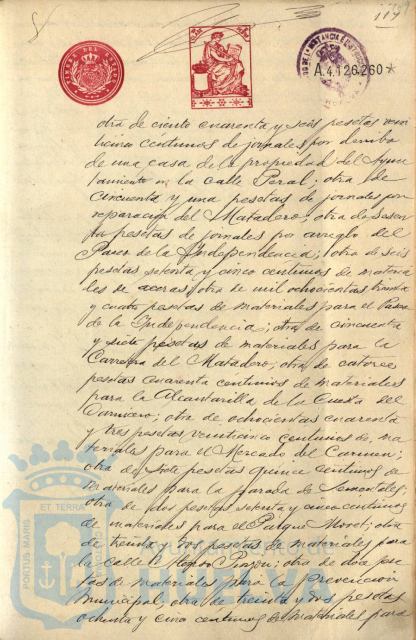 119
TIMBRE DEL ESTADO
A.4.126.260*
otra de ciento cuarenta y seis pesetas vein
ticinco centimos de jornales por derribo
de una casa de la propiedad del Ayun
tamiento en la Calle Peral; otra de
cincuenta y una pesetas de jornales por
reparacion del Matadero; otra de sesen
ta pesetas de jornales por arreglo del
Paseo de la Independencia; otra de seis
pesetas setenta y cinco centimos de materia
les de aceras; otra de mil ochocientas treinta
y cuatro pesetas de materiales para el Paseo
de la Independencia; otra de cincuenta
y siete pesetas de materiales para la
Carrera del Matadero; otra de catorce
pesetas cuarenta centimos de materiales
para la Alcantarilla de la Cuesta del
Carnicero; otra de ochocientas cuarenta
y tres pesetas veinticinco centimos de ma
teriales para el Mercado del Carmen;
otra de siete pesetas quince centimos de
materiales para la parada de Sementales;
otra de dos pesetas setenta y cinco centimos
de materiales para el Parque Moret; otra
de treinta y dos pesetas de materiales para
la calle Alonso Pinzon; otra de doce pese
tas de materiales para la Prevencion
municipal; otra de treinta y dos pesetas
ochenta y cinco centimos de materiales para
PORTUS MARIS ET TERRAE
Ayuntamiento de
HUELVA